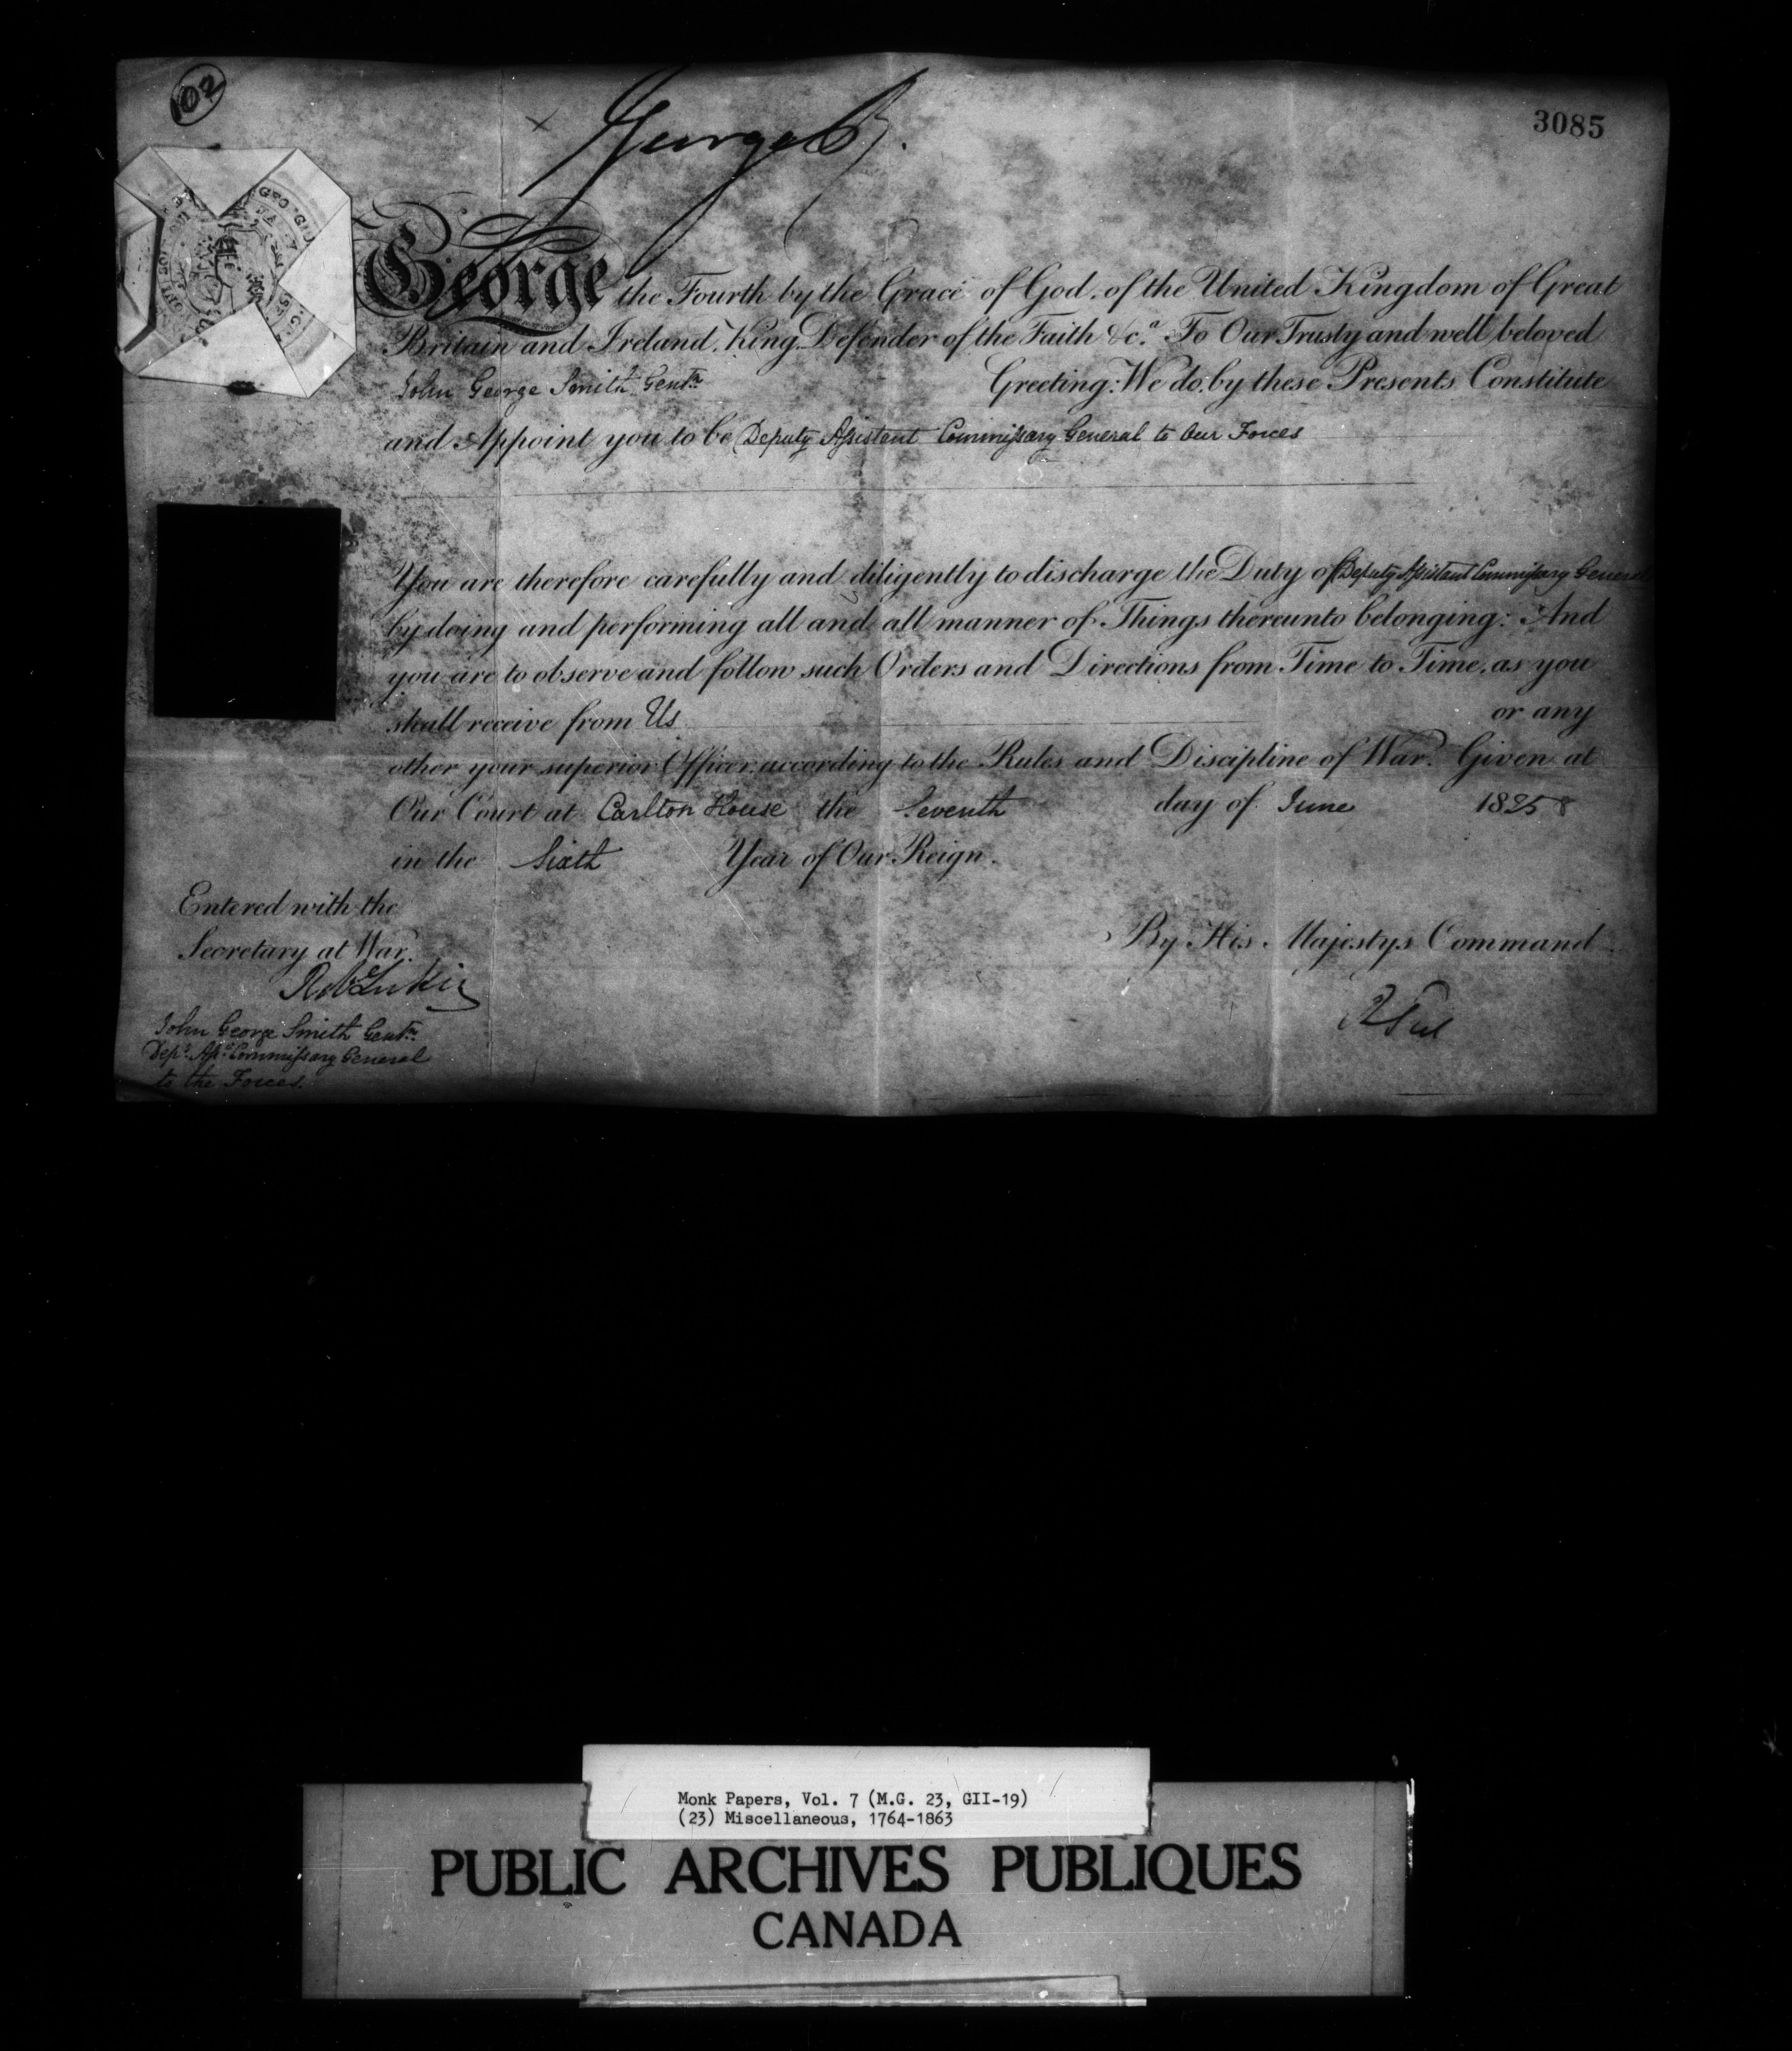 102
3085
George R.
George the Fourth by the Grace of God, of the United Kingdom of Great
Britain and Ireland, King, Defender of the Faith &c.ª To Our Trusty and well beloved
John George Smith Gent.ⁿ Greeting: We do, by these Presents, Constitute
and Appoint you to be Deputy Assistant Commissary General to Our Forces
You are therefore carefully and diligently to discharge the Duty of Deputy Assistant Commissary General
by doing and performing all and all manner of Things thereunto belonging: And
you are to observe and follow such Orders and Directions from Time to Time, as you
shall receive from Us or any
other your superior Officer, according to the Rules and Discipline of War. Given at
Our Court at Carlton House the Seventh day of June 1825
in the Sixth Year of Our Reign.
Entered with the
Secretary at War.
By His Majestys Command
R Peel
John George Smith Gent.ⁿ
Dep.ʸ Ass.ᵗ Commissary General
to the Forces.
Monk Papers, Vol. 7 (M.G. 23, GII-19)
(23) Miscellaneous, 1764-1863
PUBLIC ARCHIVES PUBLIQUES
CANADA